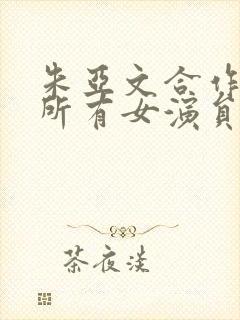 朱亚文合作
所有女演员
茶夜淡